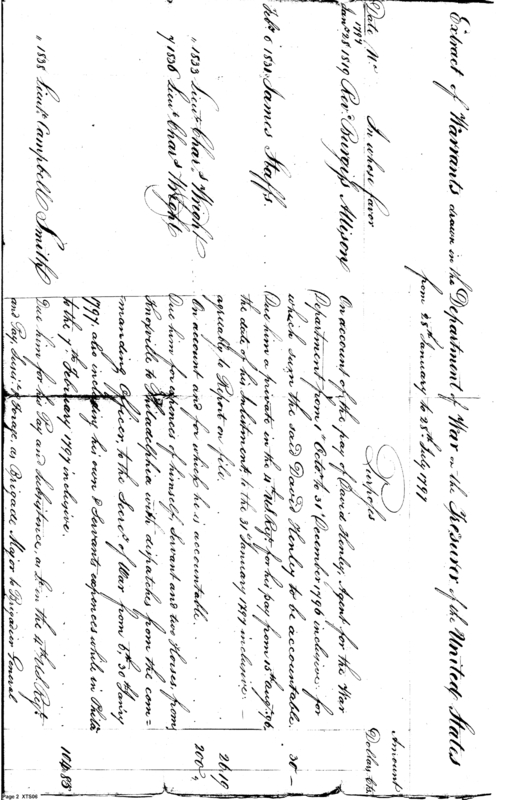 Extract of Warrants drawn in the Department of War on the Treasurer of the United States
from 25th January to 25th July 1797
Date No In whose favor Purposes Amount
1797 Dollars Cts
Jany 25 1819 Revd Burgiss Allison On account of the pay of David Henley Agent for the War
Department from 1st Octo. to 31st December 1796 inclusive for
which sum the said David Henley to be accountable.
Feby 6 James Staffs Due him a private in the Regt for his pay from 15th Augt 96
the date of his Inlistment to the 31st January 1797 inclusive 26 19
agreeably to Report on file.
" 1833 Lieut Chars Wright On account and for which he is accountable. 200 "
9 1836 Lieut Chars Wright Due him for expences of himself Servant and two Horses from
Knoxville to Philadelphia with dispatches from the com=
manding Officer, to the Secrey of War from 30th Jany
1797. also including his own & Servants expences while in Phila
to the 7th February 1797 inclusive.
" 1838 Lieut Campbell Smith Due him for his Pay and Subsistence, as Lt in the 4th Regt
and Pay Forage, as Brigade Major to Brigadier General
Page 2 XTS06